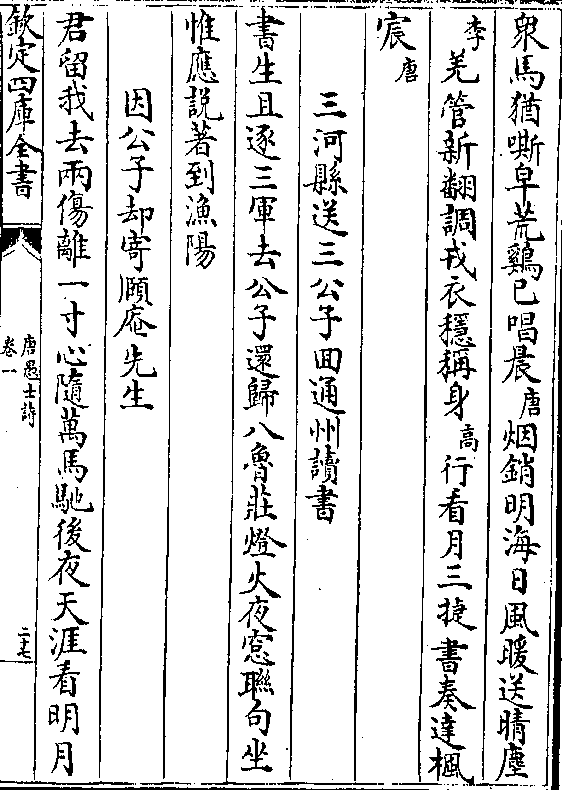 衆馬猶嘶皁荒鷄已唱晨唐烟銷明海日風暖送晴塵
李羌管新翻調戎衣穩稱身高行看月三捷書奏達楓
宸唐
三河縣送三公子囬通州讀書
書生且逐三軍去公子還歸八魯莊燈火夜窓聯句坐
惟應説著到漁陽
因公子却寄頤庵先生
君留我去兩傷離一寸心隨萬馬馳後夜天涯看明月
欽定四庫全書
唐愚士詩
卷一
二十七